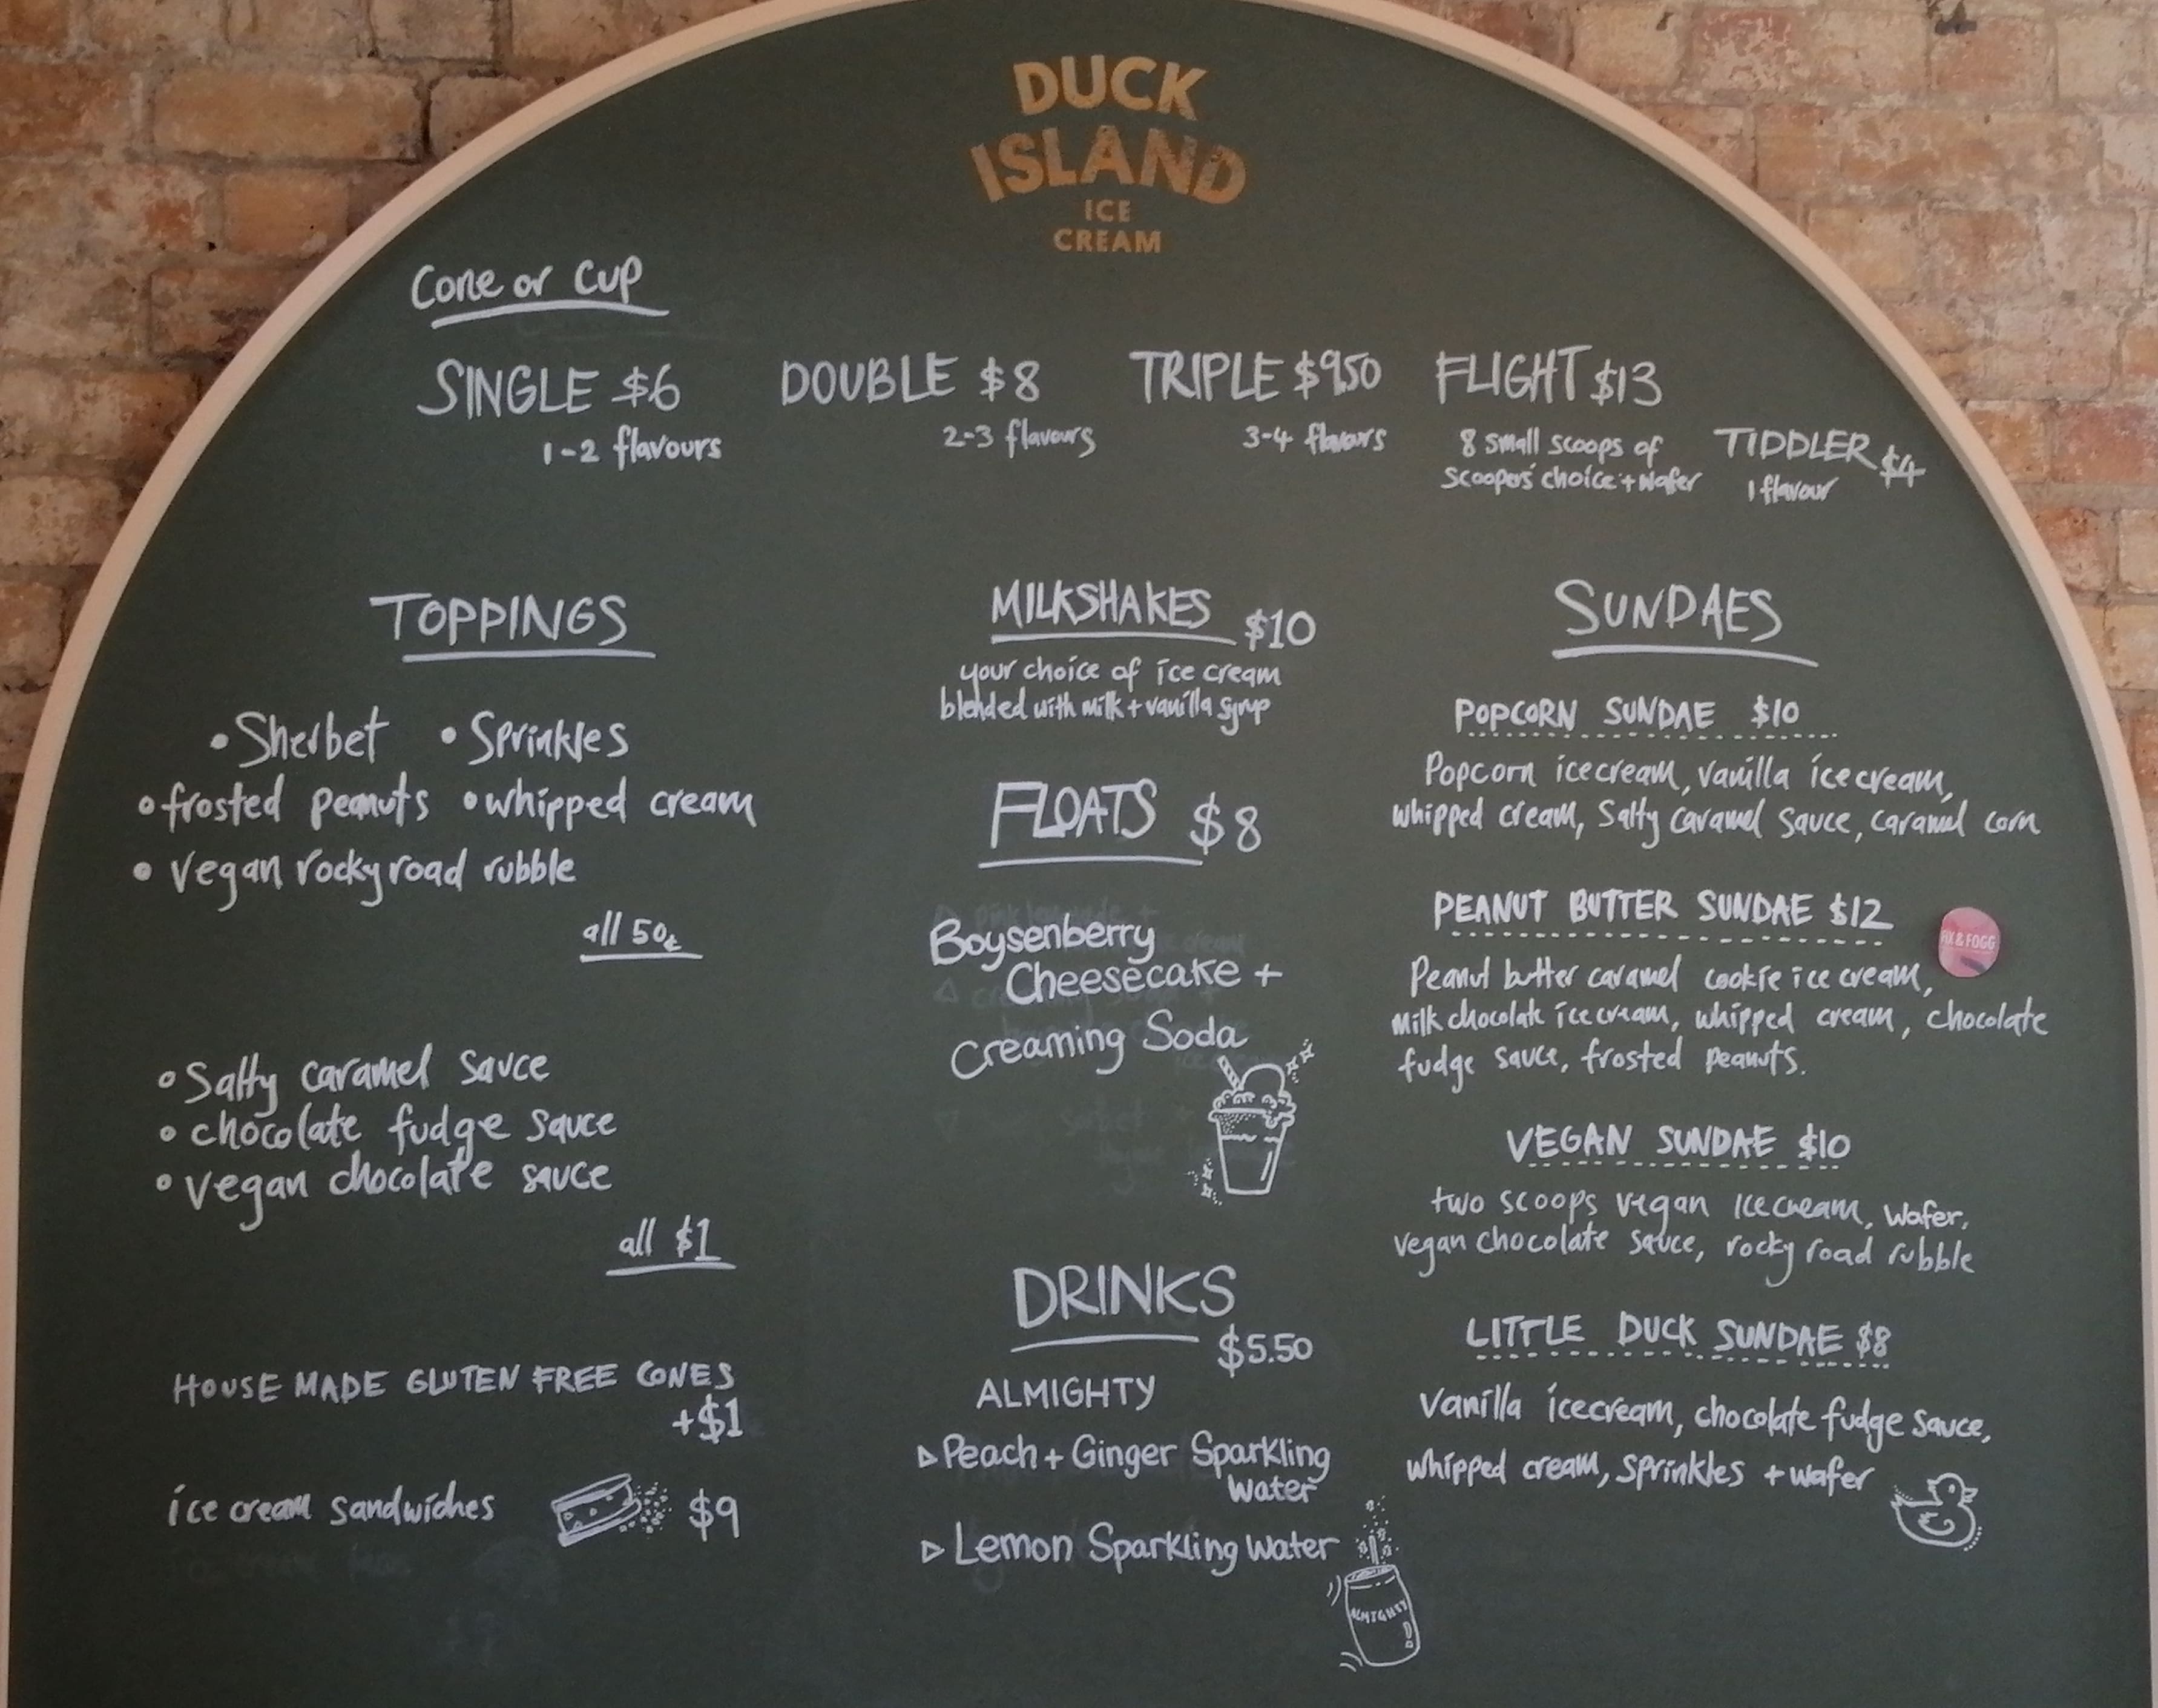 DUCK
ISLAND
ICE
CREAM
Cone or Cup
SINGLE $6
1-2 flavours
DOUBLE $8
2-3 flavours
TRIPLE $9.50
3-4 flavours
FLIGHT $13
8 small scoops of
scoopers' choice + wafer
TIDDLER $4
1 flavour
TOPPINGS
• Sherbet • Sprinkles
• frosted peanuts • whipped cream
• vegan rocky road rubble
all 50¢
• Salty caramel sauce
• chocolate fudge sauce
• vegan chocolate sauce
all $1
HOUSE MADE GLUTEN FREE CONES
+$1
ice cream sandwiches $9
MILKSHAKES $10
your choice of ice cream
blended with milk + vanilla syrup
FLOATS $8
Boysenberry
Cheesecake +
Creaming Soda
DRINKS
$5.50
ALMIGHTY
▷ Peach + Ginger Sparkling
Water
▷ Lemon Sparkling Water
ALMIGHTY
SUNDAES
POPCORN SUNDAE $10
Popcorn icecream, vanilla icecream,
whipped cream, Salty caramel sauce, caramel corn
PEANUT BUTTER SUNDAE $12
FIX & FOGG
Peanut butter caramel cookie ice cream,
milk chocolate icecream, whipped cream, chocolate
fudge sauce, frosted peanuts.
VEGAN SUNDAE $10
two scoops vegan icecream, wafer,
vegan chocolate sauce, rocky road rubble
LITTLE DUCK SUNDAE $8
Vanilla icecream, chocolate fudge sauce,
whipped cream, sprinkles + wafer